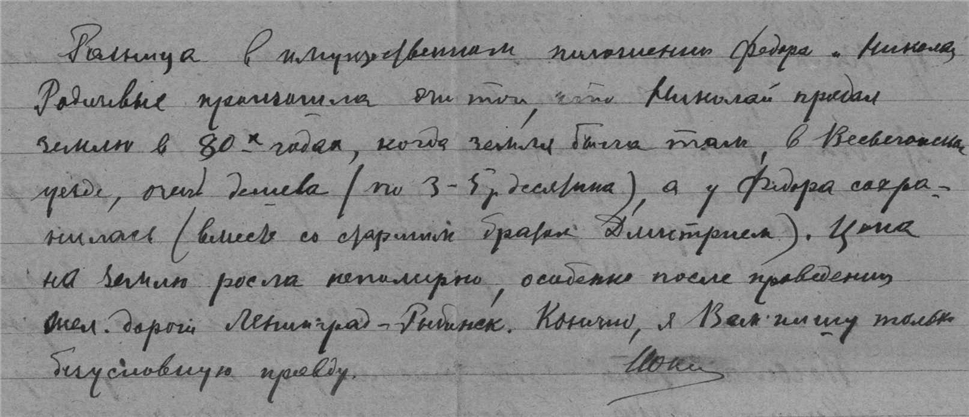 Разница в имущественном положении Федора и Николая
Родичевых произошла от того, что Николай продал
землю в 80х годах, когда земля была там, в Весьегонском
уезде, очень дешева (по 3-5 р. десятина), а у Федора сохра-
нилась (вместе со старшим братом Дмитрием). Цена
на землю росла непомерно, особенно после проведения
жел. дороги Ленинград-Рыбинск. Конечно, я Вам пишу только
безусловную правду.